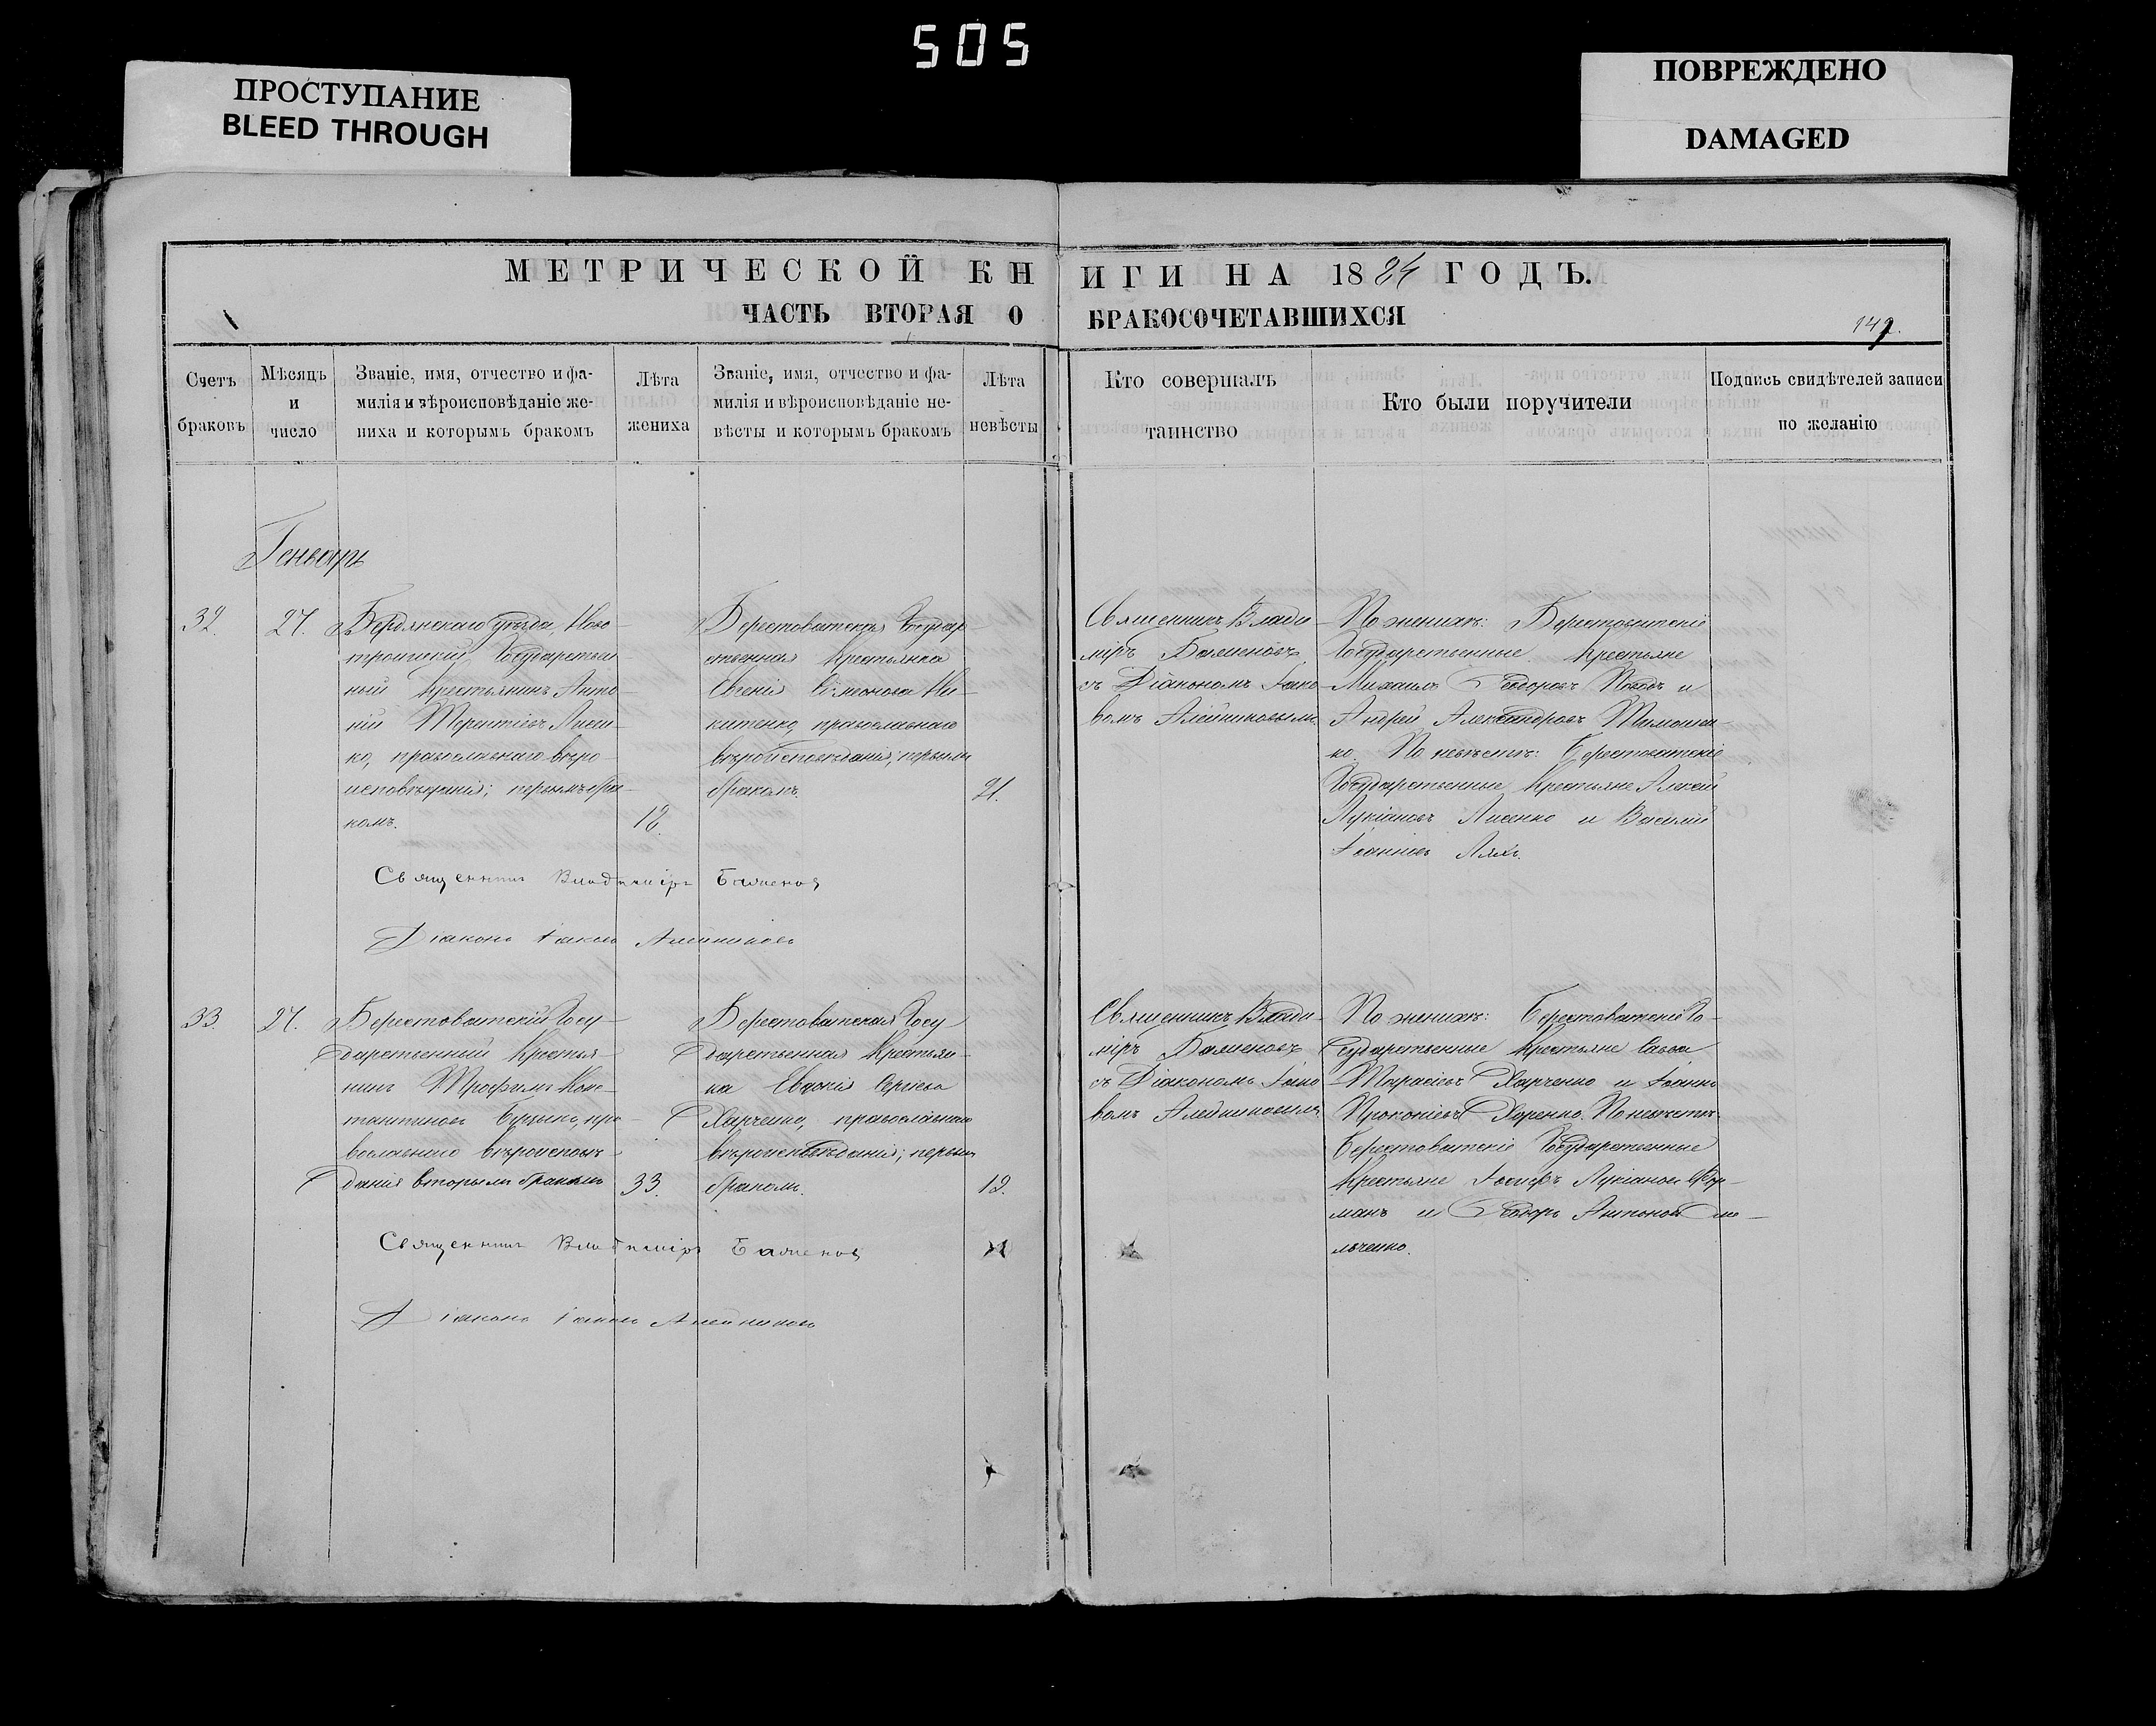 505
ПРОСТУПАНИЕ
BLEED THROUGH
ПОВРЕЖДЕНО
DAMAGED
МЕТРИЧЕСКОЙ КНИГИ НА 1884 ГОДЪ.
ЧАСТЬ ВТОРАЯ О БРАКОСОЧЕТАВШИХСЯ
149.
Счетъ
браковъ
Мѣсяцъ
и
число
Званіе, имя, отчество и фа-
милія и вѣроисповѣданіе же-
ниха и которымъ бракомъ
Лѣта
жениха
Званіе, имя, отчество и фа-
милія и вѣроисповѣданіе не-
вѣсты и которымъ бракомъ
Лѣта
невѣсты
Кто совершалъ
таинство
Кто были поручители
Подпись свидѣтелей записи
по желанію
Генварь
32.
27.
Бердянскаго уѣзда, Ново-
троицкій Государствен-
ный Крестьянинъ Анто-
ній Терентіевъ Лисен-
ко, православнаго вѣро-
исповѣданія; первымъ бра-
комъ.
18.
Берестоватская Государ-
ственная Крестьянка
Евгенія Симеонова Ни-
китенко, православнаго
вѣроисповѣданія; первымъ
бракомъ.
21.
Священникъ Влади-
міръ Баженовъ
съ Діакономъ Іако-
вомъ Алейниковымъ
По женихѣ: Берестоватскіе
Государственные Крестьяне
Михаилъ Ѳеодоровъ и
Андрей Александровъ Тимошен-
ко. По невѣстѣ: Берестоватскіе
Государственные Крестьяне Алексій
Лукіановъ Лисенко и Василій
Іоанновъ Ляхъ.
Священникъ Владиміръ Баженовъ
Діаконъ Іаковъ Алейниковъ
33.
27.
Берестоватскій Госу-
дарственный Крестья-
нинъ Трофимъ Конс-
тантиновъ пра-
вославнаго вѣроисповѣ-
данія вторымъ бракомъ
33.
Берестоватская Госу-
дарственная Крестьян-
ка Евдокія Сергіева
Харченко, православнаго
вѣроисповѣданія; первымъ
бракомъ.
19.
Священникъ Влади-
міръ Баженовъ
съ Діакономъ Іако-
вомъ Алейниковымъ
По женихѣ: Берестоватскіе Го-
сударственные Крестьяне Савва
Тарасіевъ Харченко и Іоаннъ
Прокопіевъ Хоренко. По невѣстѣ:
Берестоватскіе Государственные
Крестьяне Іосифъ Лукіановъ Фур-
манъ и Ѳеодоръ Антоновъ Оме-
льченко.
Священникъ Владиміръ Баженовъ
Діаконъ Іаковъ Алейниковъ